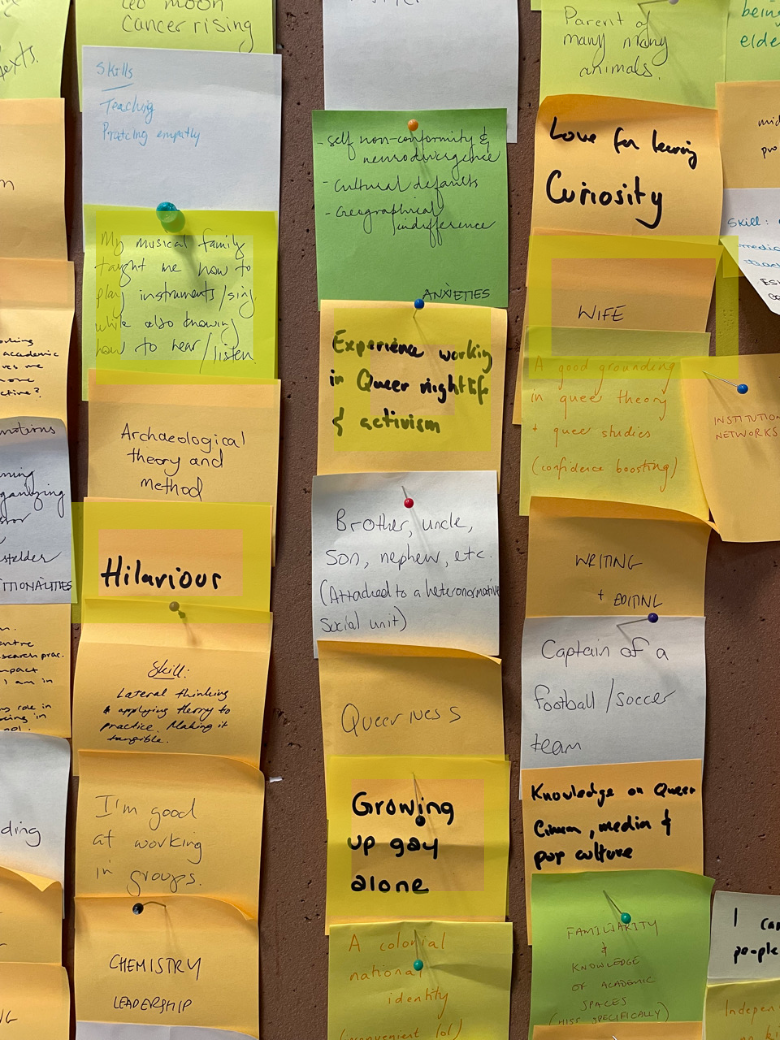 texts.
m
academic
ganizing
search prac.
mpact
I am in
role in
ding
Leo moon
Cancer rising
Skills
Teaching
empathy
My musical family
taught me how to
play instruments/sing,
while also knowing
how to hear/listen
Archaeological
theory and
method
Hilariour
Skill:
Lateral thinking
& applying theory to
practice. Making it
tangible.
I'm good
at working
in groups.
CHEMISTRY
LEADERSHIP
- self non-conformity &
neurodivergence
- cultural defaults
- Geographical
indifference
ANXIETIES
Experience working
in Queer nightlife
& activism
Brother, uncle,
Son, nephew, etc.
(Attached to a heteronormative
Social unit)
Queerness
Growing
up gay
alone
A colonial
national
identity
(convenient lol)
Parent of
many many
animals.
Love for learning
Curiosity
WIFE
A good grounding
in queer theory
+ queer studies
(confidence boosting)
WRITING
+ EDITING
Captain of a
football/soccer
team
Knowledge on Queer
Cinema, media &
pop culture
FAMILIARITY
&
KNOWLEDGE
OF ACADEMIC
SPACES
(HISC SPECIFICALLY)
being
elde
mid
pro
Skill:
INSTITUTIO
NETWORKS
I can
people
Indepen